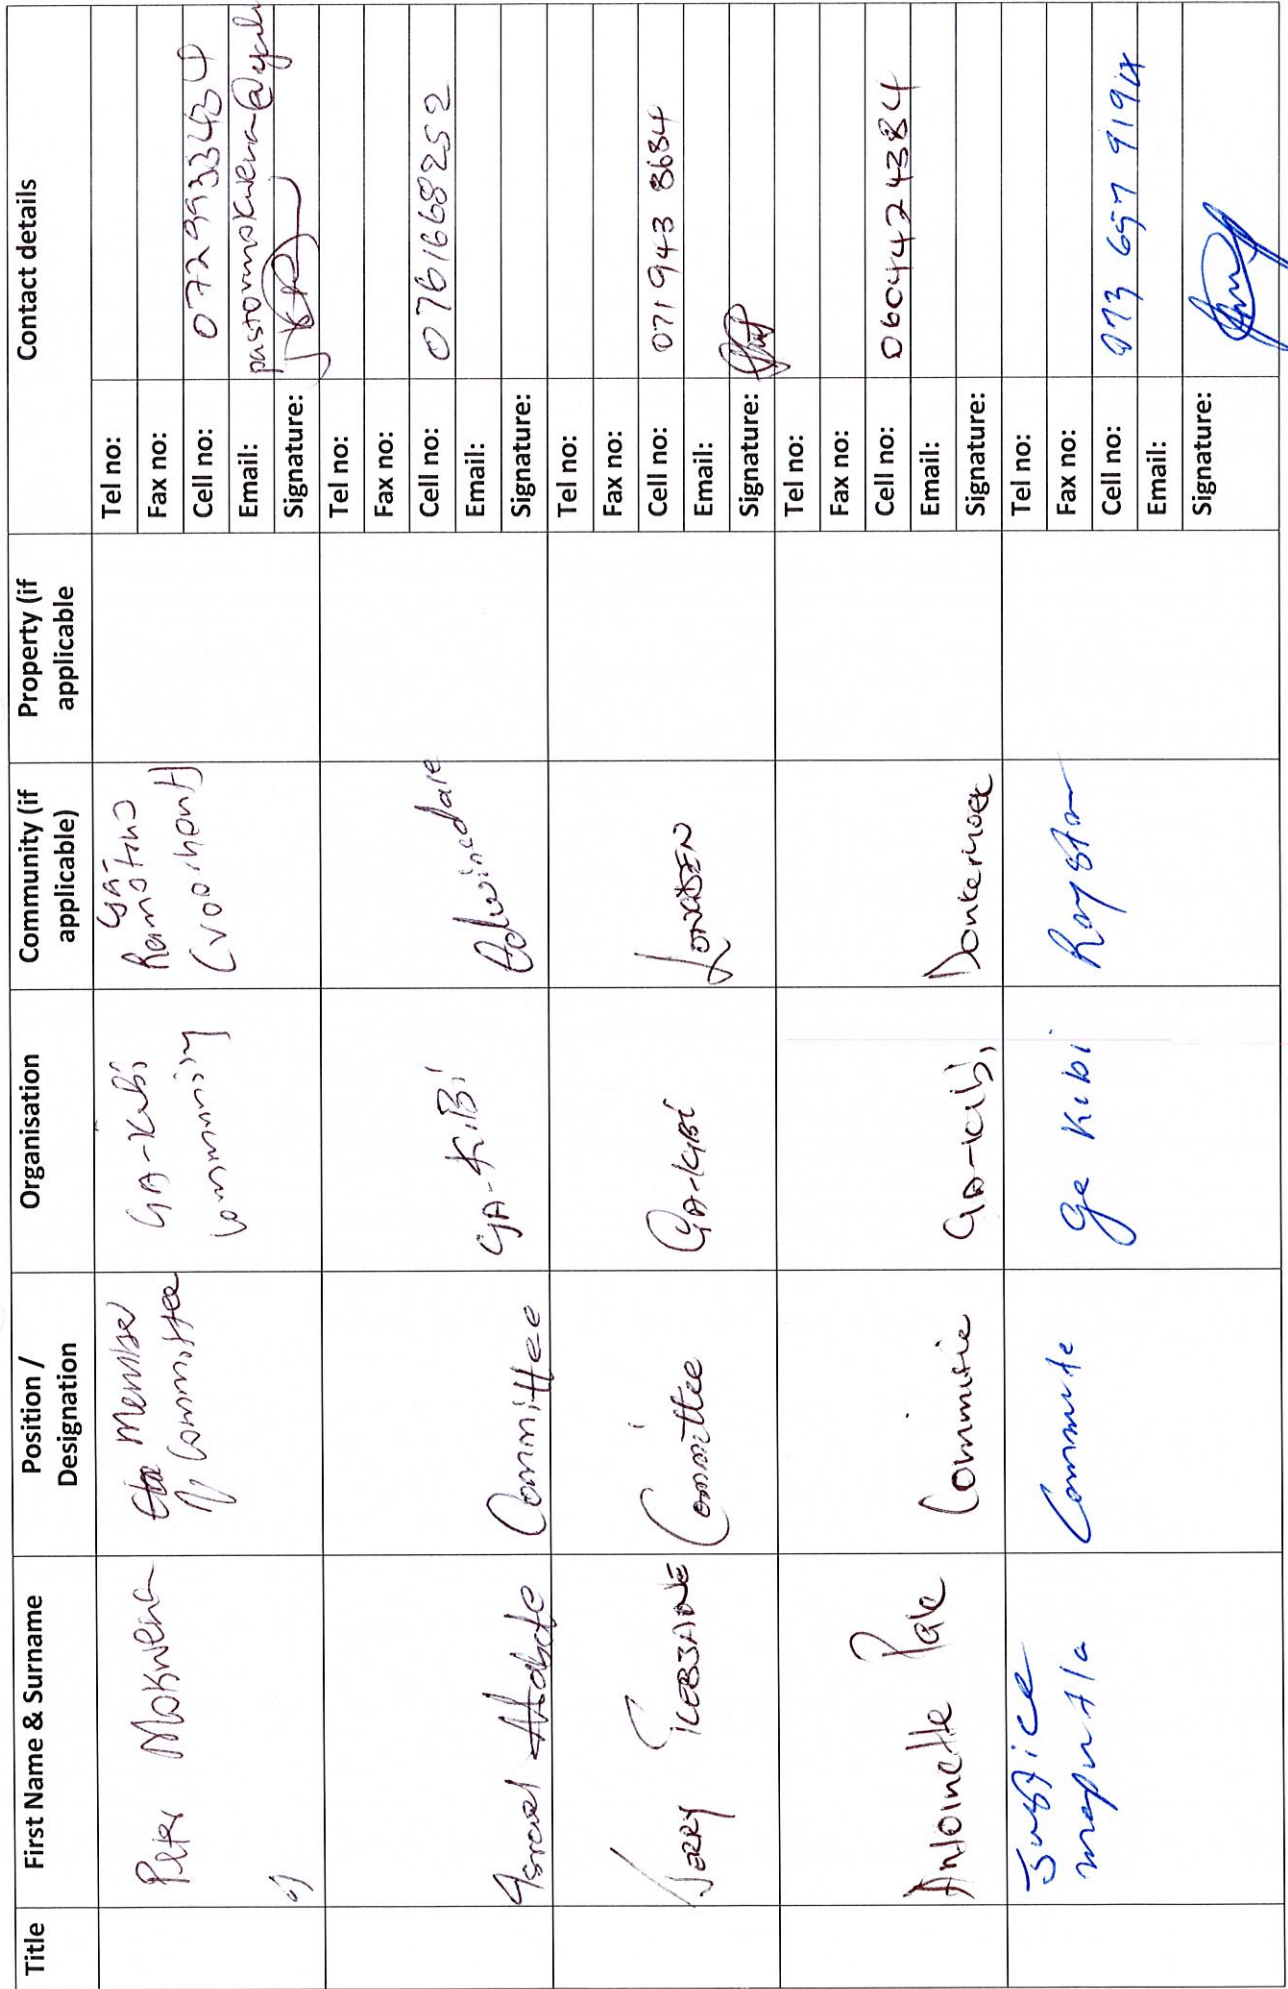 Title First Name & Surname Position / Designation Organisation Community (if applicable) Property (if applicable Contact details
Peter Mokwena
Member
Committee
GA-Kibi
Community
Ga
Tel no:
Fax no:
Cell no: 0729933434
Email: pastormokwena@
Signature:
Committee GA-KiBi
Tel no:
Fax no:
Cell no: 0761668252
Email:
Signature:
JERRY
Committee GA-KiBi LONDEN
Tel no:
Fax no:
Cell no: 071 943 8684
Email:
Signature:
Antoinette
GA-Kibi, Donkerhoek
Tel no:
Fax no:
Cell no: 0604424384
Email:
Signature:
Justice
ga Kibi Royston
Tel no:
Fax no:
Cell no: 073 657
Email:
Signature: